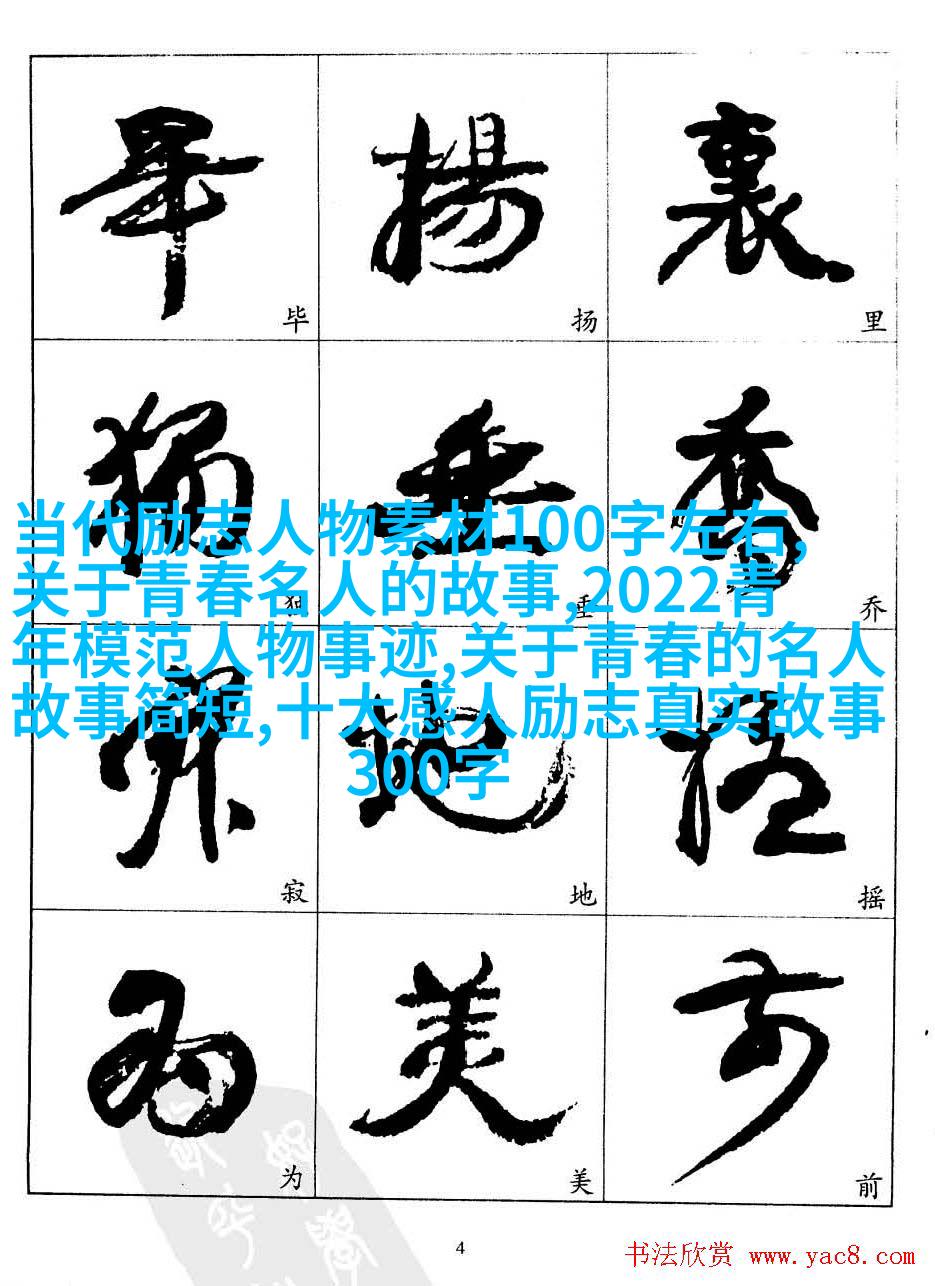 畢 揚 裏
毕 扬 里
垂 喬
当代励志人物素材100字左右,
关于青春名人的故事,2022青
年模范人物事迹,关于青春的名人
故事简短,十大感人励志真实故事
300字
垂 乔
寂 地 摇
寂 地 摇
为 美 前
为 美 前
4
书法欣赏 www.yac8.com